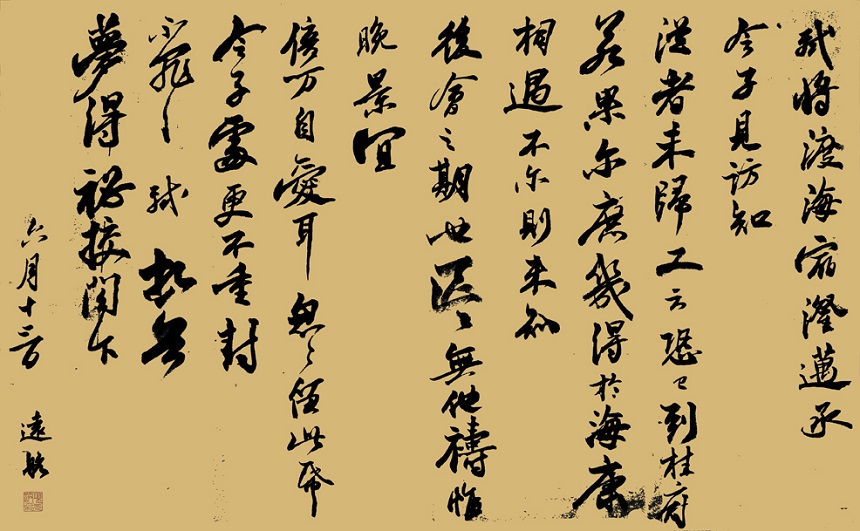 軾將渡海宿澄邁承
令子見訪知
從者未歸又云恐已到桂府
若果尔庶幾得於海康
相遇不尔則未知
後會之期也區〻無他禱惟
晚景宜
倍万自愛耳怱〻留此帋
令子處更不重封
不罪〻軾頓首
夢得祕校閣下
六月十三日
遠